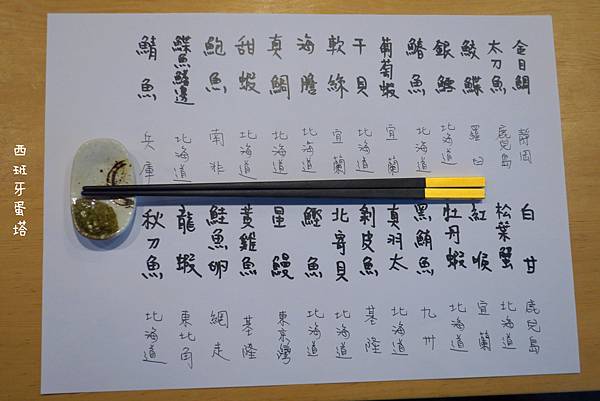 金目鯛 靜岡
太刀魚 鹿兒島
鮫鰈 羅臼
銀鱈 北海道
鰆魚 北海道
葡萄蝦 宜蘭
干貝 北海道
軟絲 宜蘭
海膽 北海道
真鯛 北海道
甜蝦 北海道
鮑魚 南非
鰈魚鰭邊 北海道
鯖魚 兵庫
白甘 鹿兒島
松葉蟹 北海道
紅喉 宜蘭
牡丹蝦 北海道
黑鮪魚 九州
真羽太 北海道
剝皮魚 基隆
北寄貝 北海道
鰹魚 北海道
星鰻 東京灣
菱雞魚 基隆
鮭魚卵 網走
龍蝦 東北角
秋刀魚 北海道
西班牙蛋塔